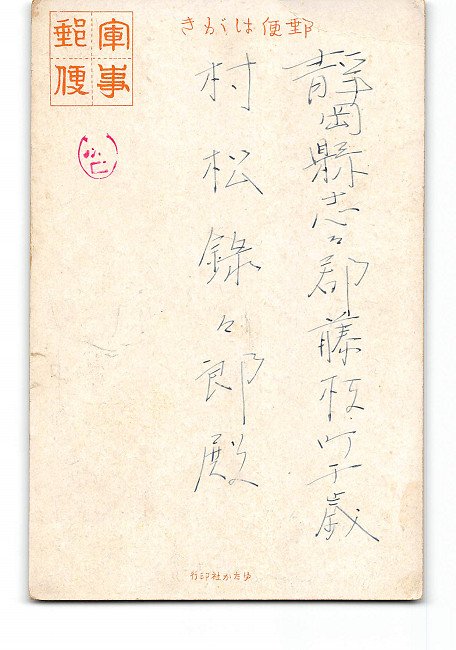 郵便はがき
軍事
郵便
靜岡縣志太郡藤枝町千歳
村松錄々郎殿
ゆたか社印行